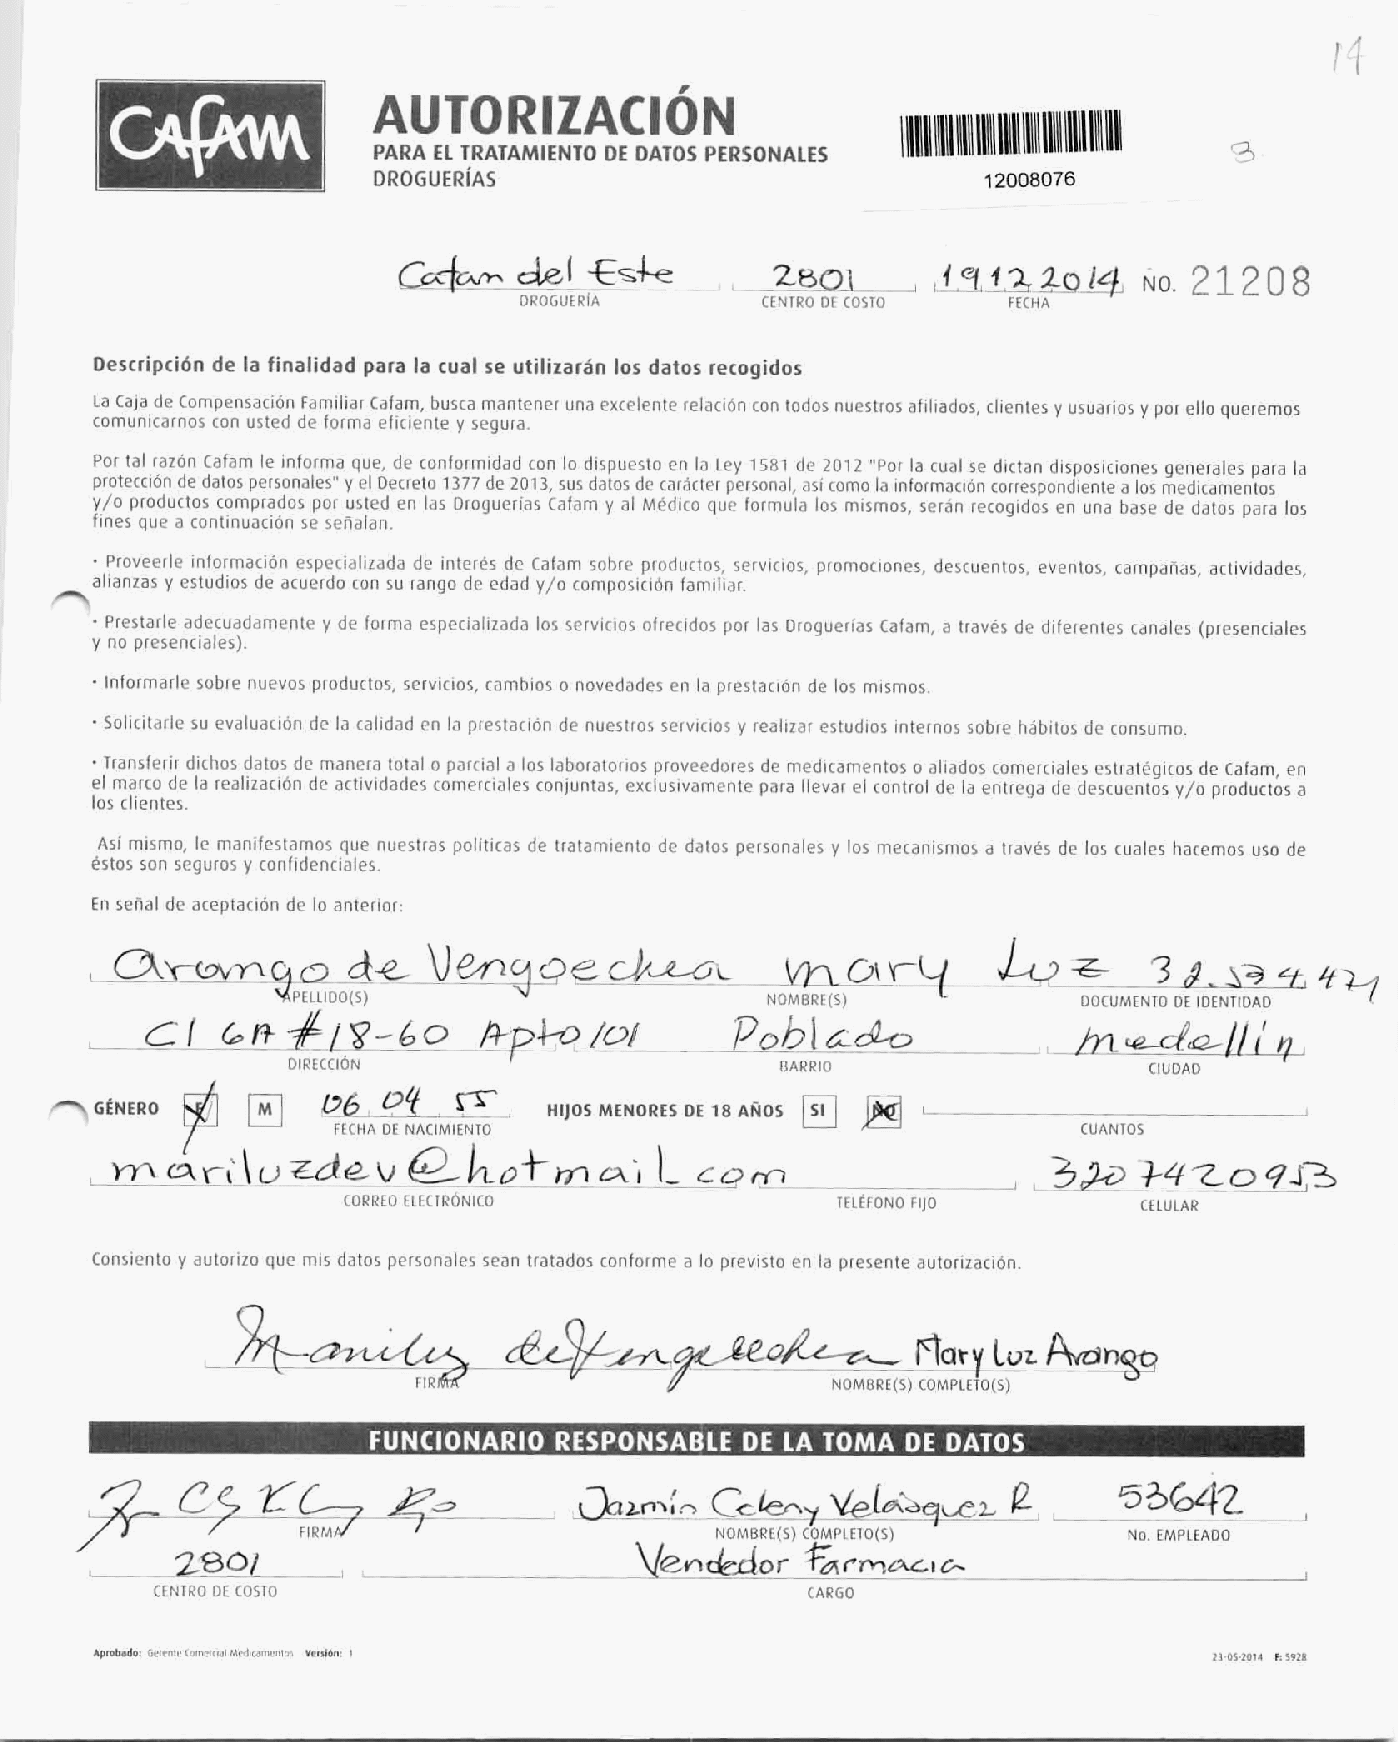 14
Cafam
AUTORIZACIÓN
PARA EL TRATAMIENTO DE DATOS PERSONALES
DROGUERÍAS
12008076
3
Cafam del Este 2801 19 12 2014 No. 21208
DROGUERÍA CENTRO DE COSTO FECHA
Descripción de la finalidad para la cual se utilizarán los datos recogidos
La Caja de Compensación Familiar Cafam, busca mantener una excelente relación con todos nuestros afiliados, clientes y usuarios y por ello queremos
comunicarnos con usted de forma eficiente y segura.
Por tal razón Cafam le informa que, de conformidad con lo dispuesto en la Ley 1581 de 2012 "Por la cual se dictan disposiciones generales para la
protección de datos personales" y el Decreto 1377 de 2013, sus datos de carácter personal, así como la información correspondiente a los medicamentos
y/o productos comprados por usted en las Droguerías Cafam y al Médico que formula los mismos, serán recogidos en una base de datos para los
fines que a continuación se señalan.
· Proveerle información especializada de interés de Cafam sobre productos, servicios, promociones, descuentos, eventos, campañas, actividades,
alianzas y estudios de acuerdo con su rango de edad y/o composición familiar.
· Prestarle adecuadamente y de forma especializada los servicios ofrecidos por las Droguerías Cafam, a través de diferentes canales (presenciales
y no presenciales).
· Informarle sobre nuevos productos, servicios, cambios o novedades en la prestación de los mismos.
· Solicitarle su evaluación de la calidad en la prestación de nuestros servicios y realizar estudios internos sobre hábitos de consumo.
· Transferir dichos datos de manera total o parcial a los laboratorios proveedores de medicamentos o aliados comerciales estratégicos de Cafam, en
el marco de la realización de actividades comerciales conjuntas, exclusivamente para llevar el control de la entrega de descuentos y/o productos a
los clientes.
Así mismo, le manifestamos que nuestras políticas de tratamiento de datos personales y los mecanismos a través de los cuales hacemos uso de
éstos son seguros y confidenciales.
En señal de aceptación de lo anterior:
Arango de Vengoechea Mary Luz
APELLIDO(S) NOMBRE(S) DOCUMENTO DE IDENTIDAD
Cl 6A #18-60 Apto 101 Poblado medellín
DIRECCIÓN BARRIO CIUDAD
GÉNERO F M 06 04 55 HIJOS MENORES DE 18 AÑOS SI NO
FECHA DE NACIMIENTO CUANTOS
mariluzdev@hotmail.com 3207420953
CORREO ELECTRÓNICO TELÉFONO FIJO CELULAR
Consiento y autorizo que mis datos personales sean tratados conforme a lo previsto en la presente autorización.
Mariluz de Vengoechea Mary Luz Arango
FIRMA NOMBRE(S) COMPLETO(S)
FUNCIONARIO RESPONSABLE DE LA TOMA DE DATOS
Jazmín Celeny Velásquez R 53642
FIRMA NOMBRE(S) COMPLETO(S) No. EMPLEADO
2801 Vendedor Farmacia
CENTRO DE COSTO CARGO
Aprobado: Gerente Comercial Medicamentos Versión: 1 23-05-2014 F: 5928